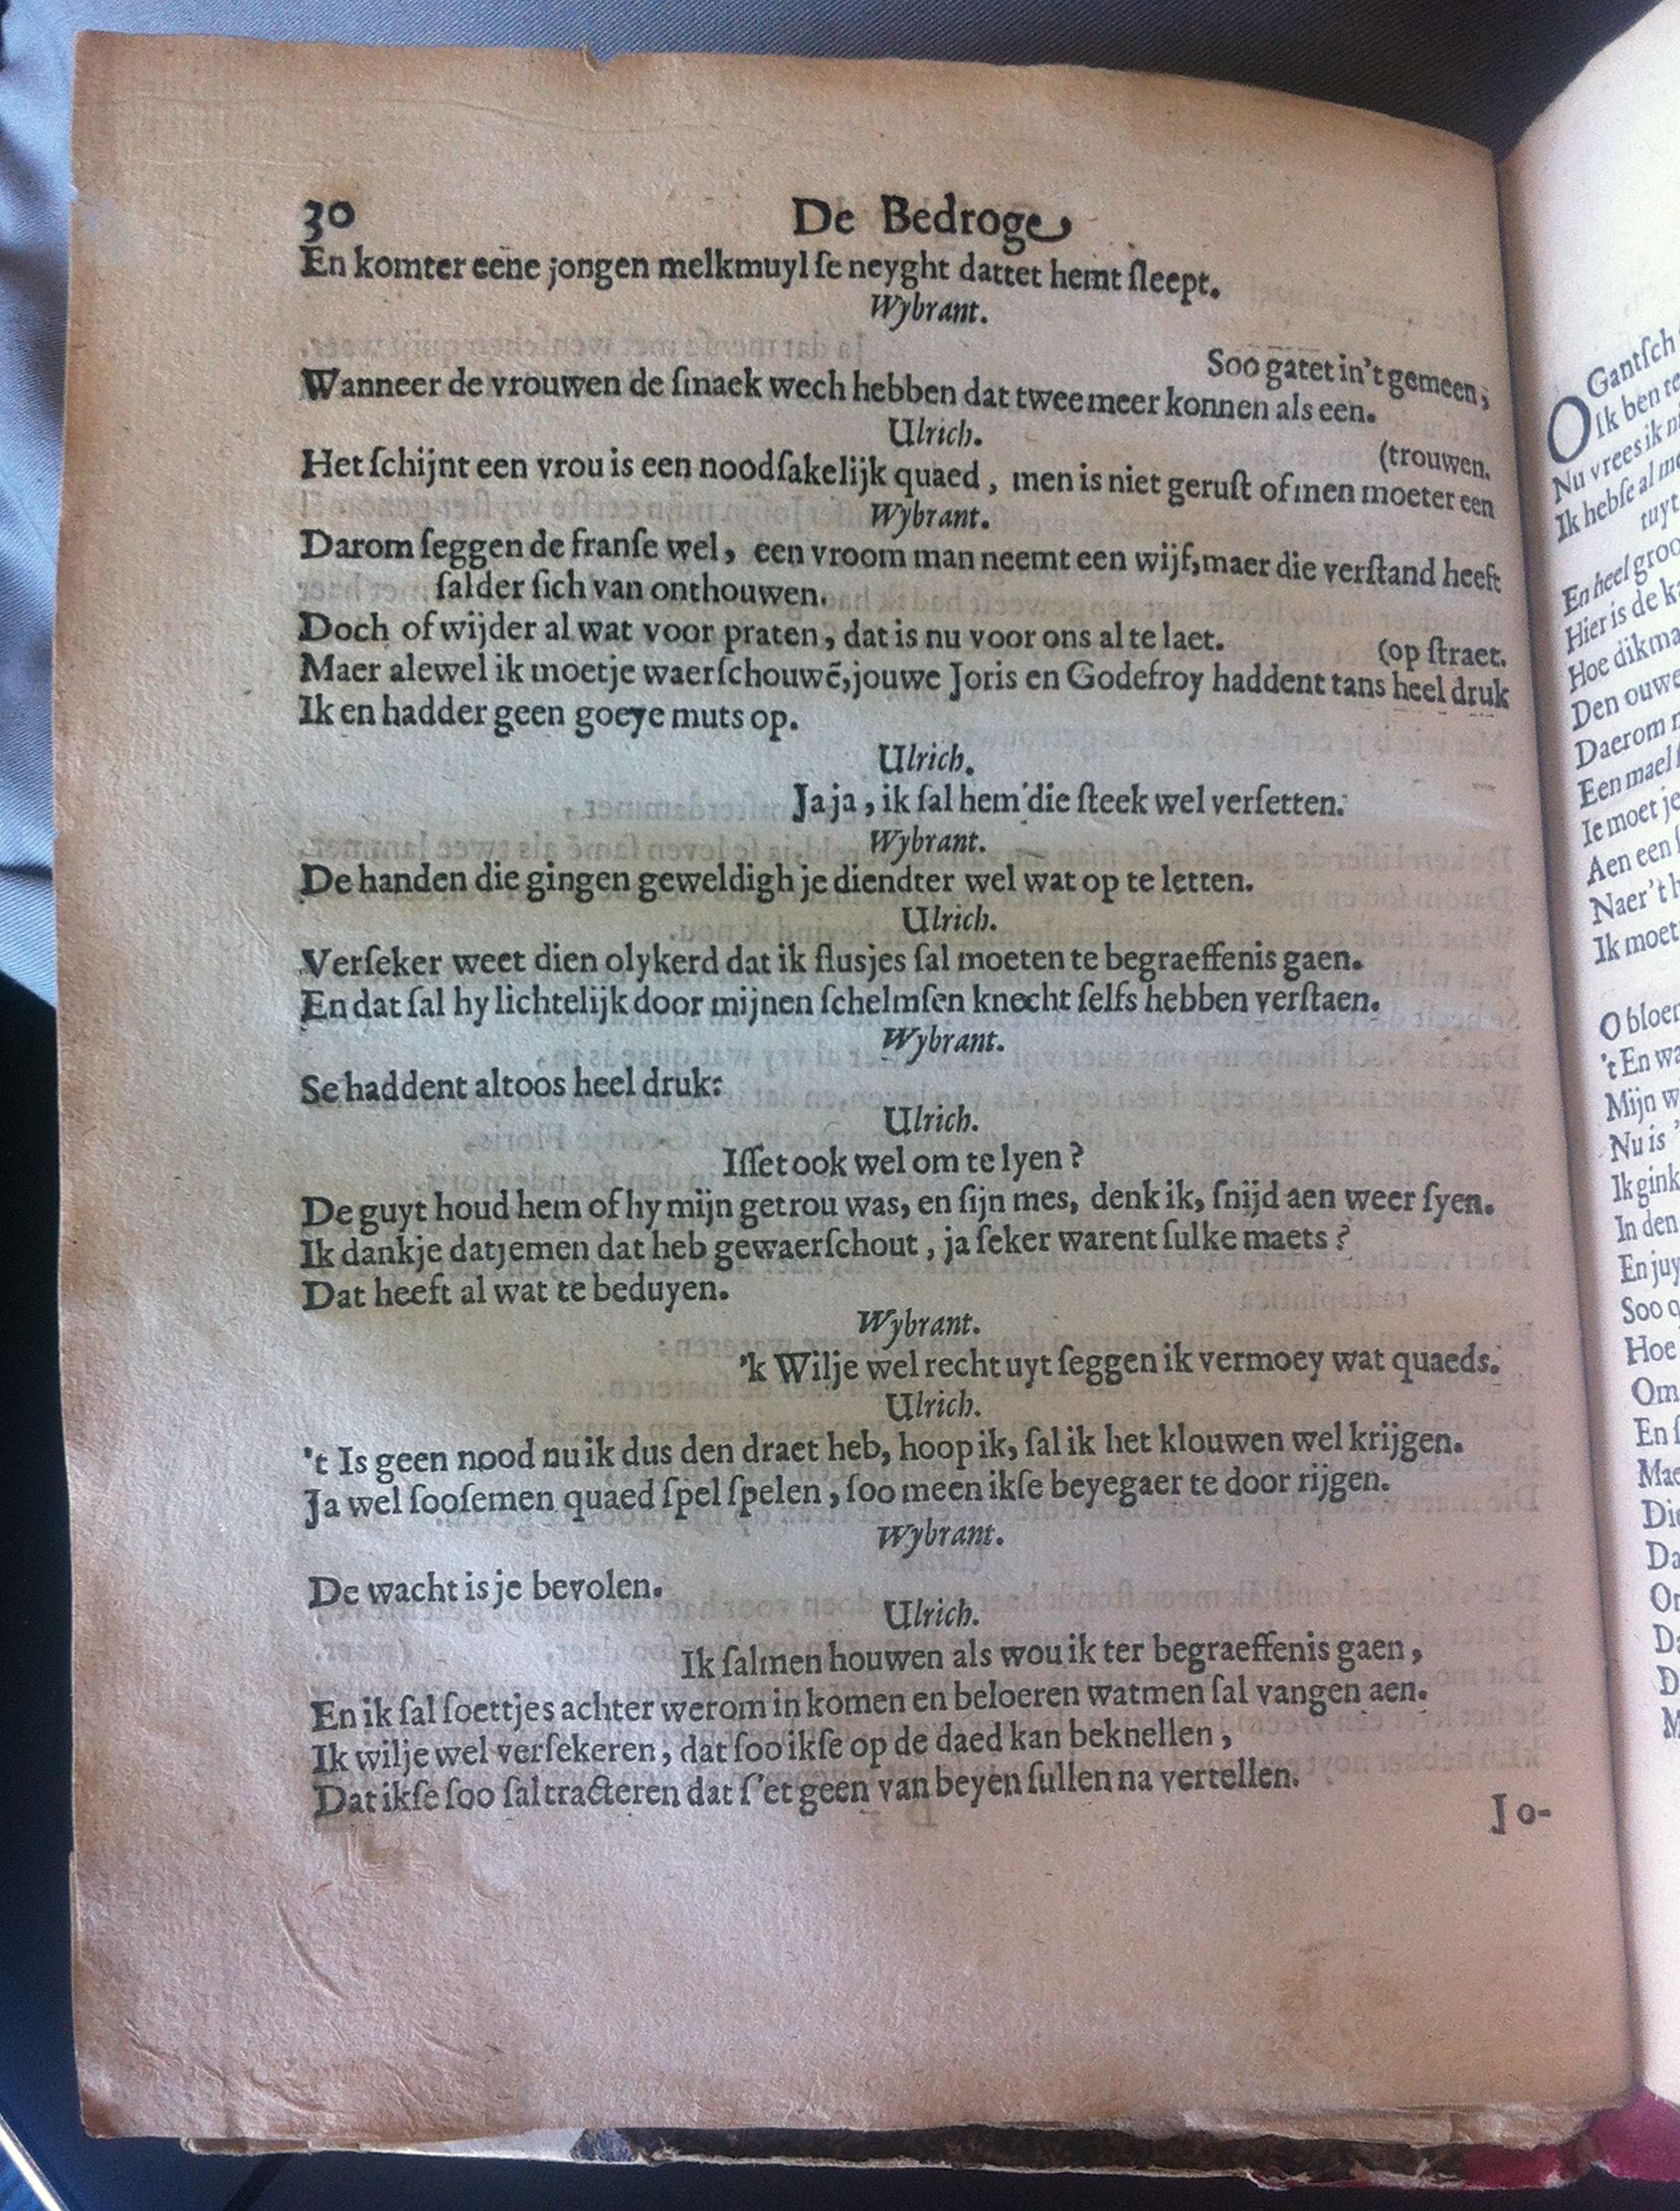 30 De Bedroge
En komter eene jongen melkmuyl ſe neyght dattet hemt ſleept.
Wybrant.
Soo gatet in't gemeen;
Wanneer de vrouwen de ſmaek wech hebben dat twee meer konnen als een.
Ulrich.
(trouwen.
Het ſchijnt een vrou is een noodſakelijk quaed, men is niet geruſt of men moeter een
Wybrant.
Darom ſeggen de franſe wel, een vroom man neemt een wijf, maer die verſtand heeft
ſalder ſich van onthouwen.
Doch of wijder al wat voor praten, dat is nu voor ons al te laet.
(op ſtraet.
Maer alewel ik moetje waerſchouwẽ, jouwe Joris en Godefroy haddent tans heel druk
Ik en hadder geen goeye muts op.
Ulrich.
Ja ja, ik ſal hem die ſteek wel verſetten.
Wybrant.
De handen die gingen geweldigh je diendter wel wat op te letten.
Ulrich.
Verſeker weet dien olykerd dat ik fluſjes ſal moeten te begraeffenis gaen.
En dat ſal hy lichtelijk door mijnen ſchelmſen knecht ſelfs hebben verſtaen.
Wybrant.
Se haddent altoos heel druk:
Ulrich.
Iſſet ook wel om te lyen?
De guyt houd hem of hy mijn getrou was, en ſijn mes, denk ik, ſnijd aen weer ſyen.
Ik dankje datjemen dat heb gewaerſchout, ja ſeker warent ſulke maets?
Dat heeft al wat te beduyen.
Wybrant.
'k Wilje wel recht uyt ſeggen ik vermoey wat quaeds.
Ulrich.
't Is geen nood nu ik dus den draet heb, hoop ik, ſal ik het klouwen wel krijgen.
Ja wel ſooſemen quaed ſpel ſpelen, ſoo meen ikſe beyegaer te door rijgen.
Wybrant.
De wacht is je bevolen.
Ulrich.
Ik ſalmen houwen als wou ik ter begraeffenis gaen,
En ik ſal ſoettjes achter werom in komen en beloeren watmen ſal vangen aen.
Ik wilje wel verſekeren, dat ſoo ikſe op de daed kan beknellen,
Dat ikſe ſoo ſal tracteren dat ſ'et geen van beyen ſullen na vertellen.
Jo-
Gantſch
O Ik ben
Nu vrees ik
Ik hebſe al
En heel
Hier is de
Hoe
Den
Daerom
Een mael
Ie moet je
Aen een
Naer 't
Ik moet
O
't En
Mijn
Nu is
Ik gink
In den
En
Soo
Hoe
Om
En